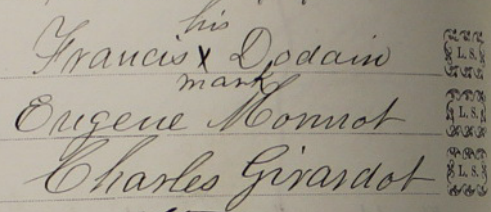 his
Francis x Dodain L.S.
mark
Eugene Monnot L.S.
Charles Girardot L.S.